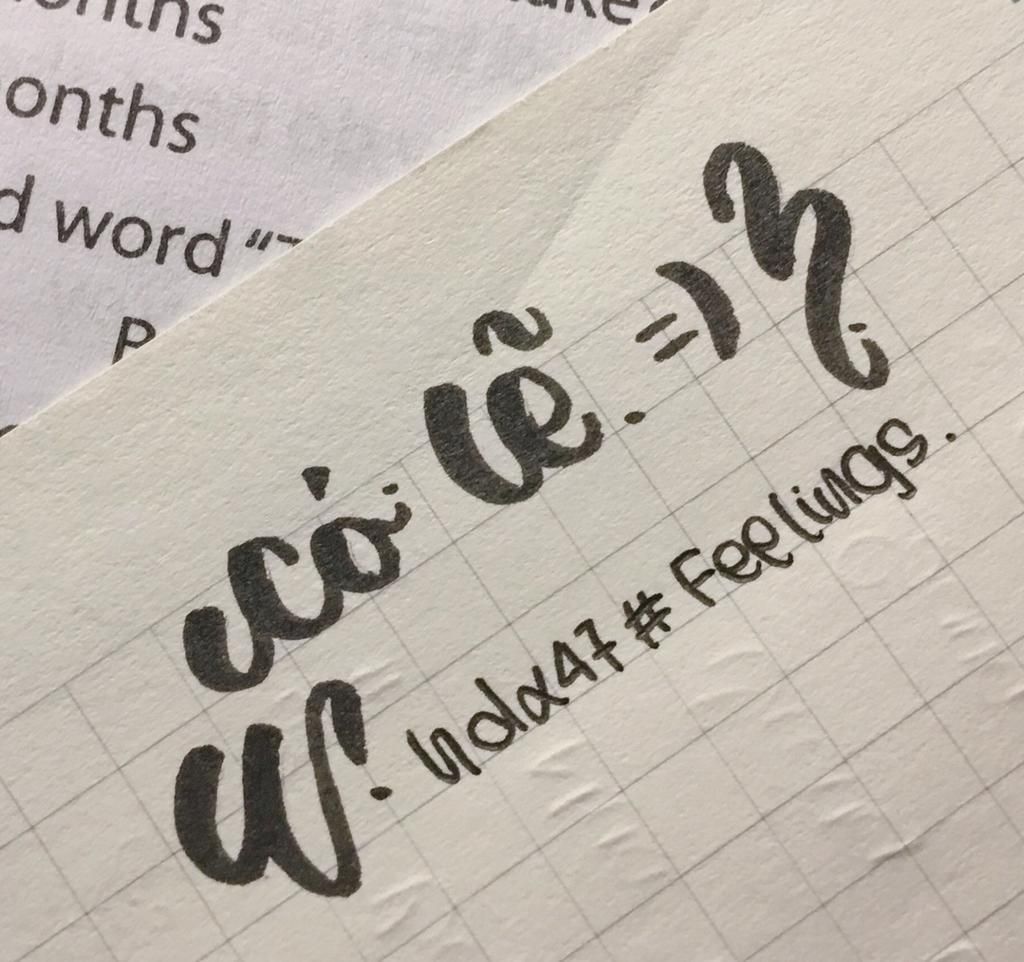 onths
onths
d word "
P
có lẽ. =)
ndx47 # Feelings.